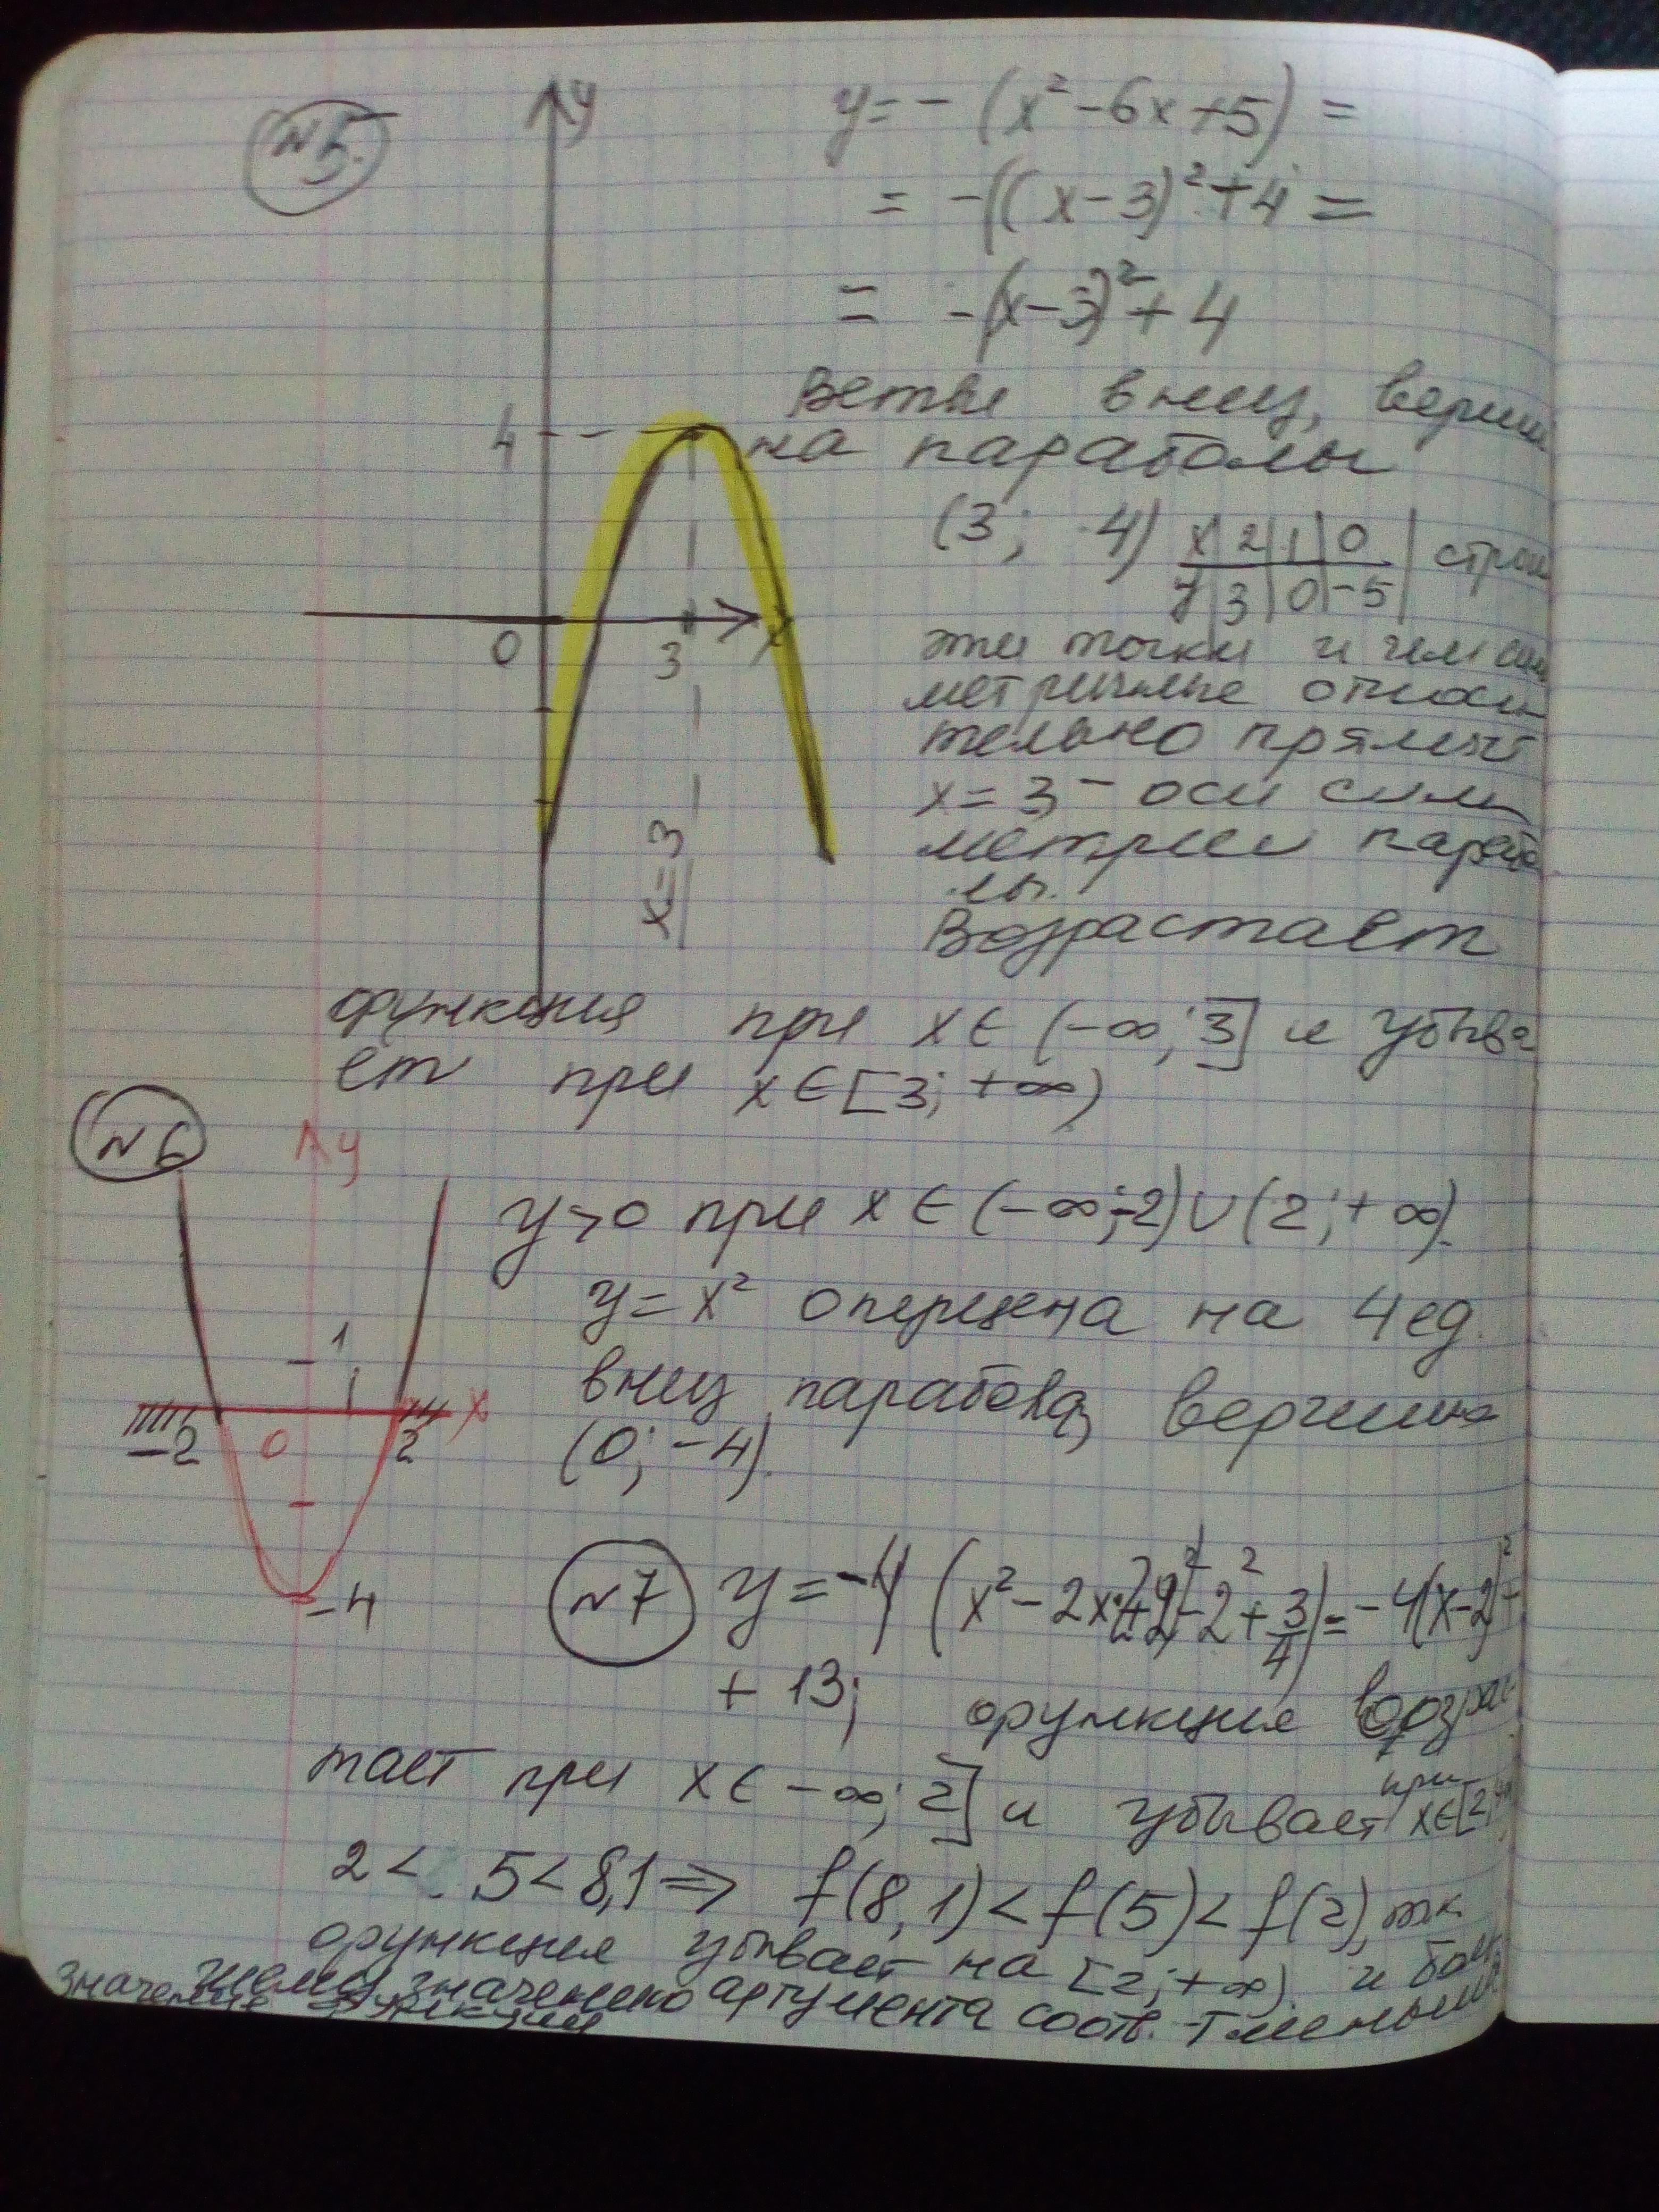 №5.
y
y = - (x² - 6x + 5) =
= - ((x - 3)² + 4 =
= - (x - 3)² + 4
Ветви вниз, верши
4
на параболы
(3; 4) x 2 | 1 | 0
y | 3 | 0 | -5 | строи
0 3 x
эти точки и им сим
метричные относи
тельно прямой
x = 3 - оси сим
x = 3
метрии парабо
лы.
Возрастает
функция при x ∈ (-∞; 3] и убыва
ет при x ∈ [3; +∞)
№6
y
y > 0 при x ∈ (-∞; -2) ∪ (2; +∞).
y = x² опущена на 4 ед.
1
вниз парабола, вершина
1
x
-2 0 2
(0; -4).
-4
№7 y = -4 (x² - 2x·2 + 2² - 2² + 3/4) = -4(x-2)² +
+ 13; функция возрас
тает при x ∈ -∞; 2] и убывает при x ∈ [2
2 < 5 < 8,1 ⇒ f(8,1) < f(5) < f(2), тк
функция убывает на [2; +∞) и боль
шему значению аргумента соотв. т меньшее
значение функции